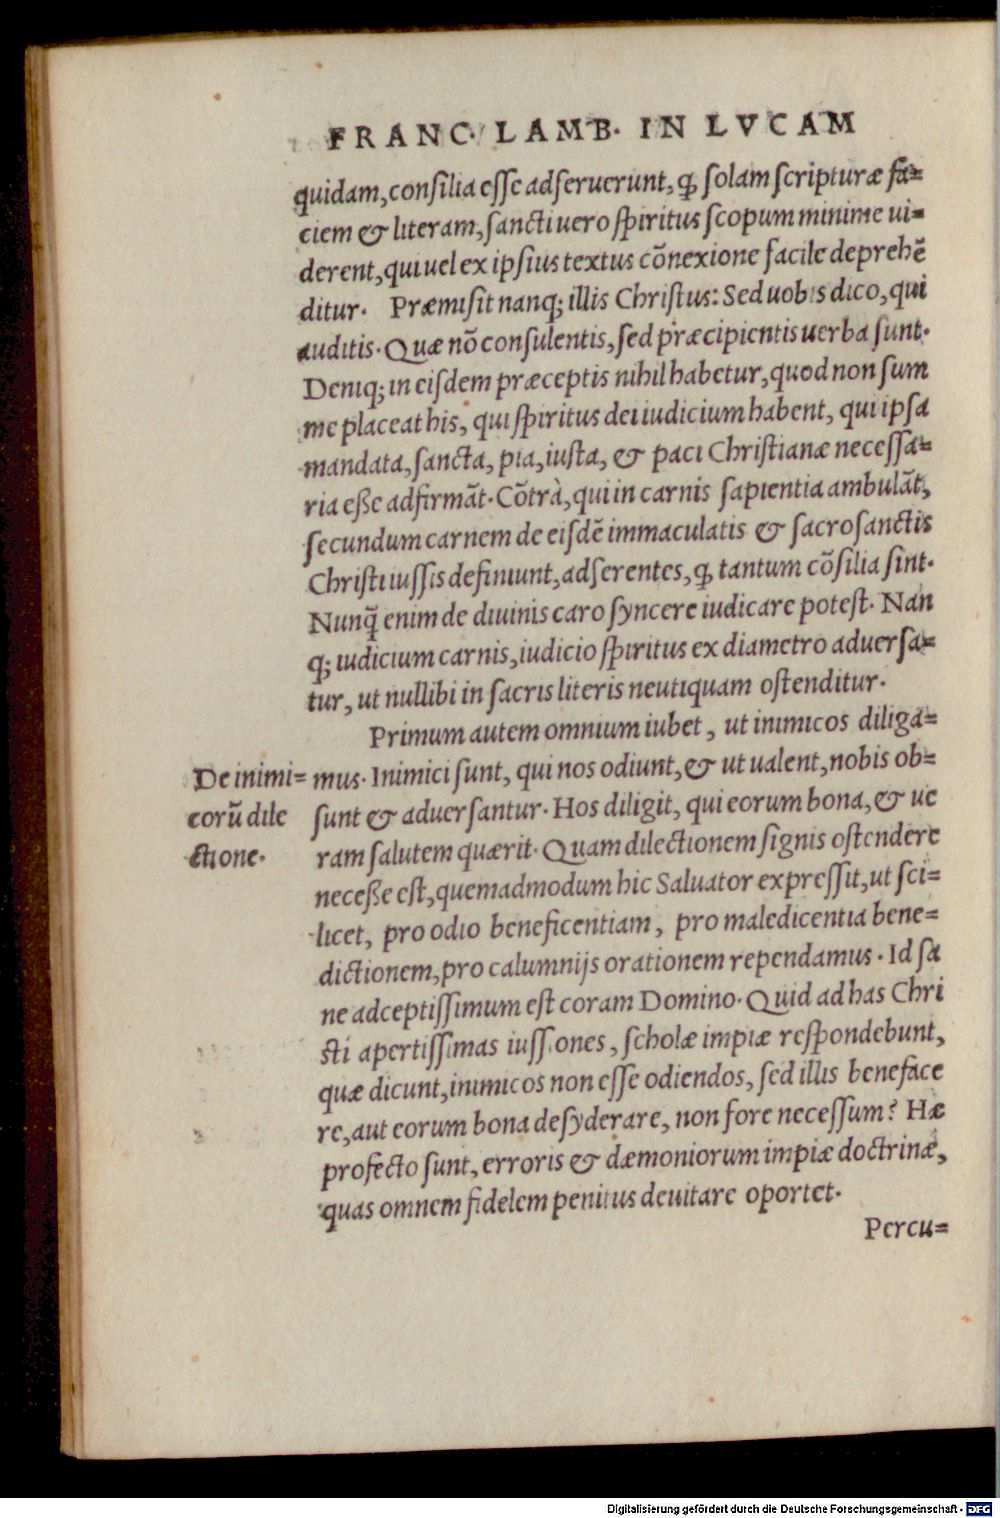 FRANC. LAMB. IN LVCAM
quidam, consilia esse adseruerunt, ꝙ solam scripturæ fa=
ciem & literam, sancti uero spiritus scopum minime ui=
derent, qui uel ex ipsius textus cõnexione facile deprehẽ
ditur. Præmisit nanq; illis Christus: Sed uobis dico, qui
auditis. Quæ nõ consulentis, sed præcipientis uerba sunt.
Deniq; in eisdem præceptis nihil habetur, quod non sum
me placeat his, qui spiritus dei iudicium habent, qui ipsa
mandata, sancta, pia, iusta, & paci Christianæ necessa=
ria eße adfirmãt. Cõtrà, qui in carnis sapientia ambulãt,
secundum carnem de eisdẽ immaculatis & sacrosanctis
Christi iussis definiunt, adserentes, ꝙ tantum cõsilia sint.
Nunq̃ enim de diuinis caro syncere iudicare potest. Nan
q; iudicium carnis, iudicio spiritus ex diametro aduersa=
tur, ut nullibi in sacris literis neutiquam ostenditur.
Primum autem omnium iubet, ut inimicos diliga=
De inimi=
corũ dile
ctione.
mus. Inimici sunt, qui nos odiunt, & ut ualent, nobis ob=
sunt & aduersantur. Hos diligit, qui eorum bona, & ue
ram salutem quærit. Quam dilectionem signis ostendere
neceße est, quemadmodum hic Saluator expressit, ut sci=
licet, pro odio beneficentiam, pro maledicentia bene=
dictionem, pro calumnijs orationem rependamus. Id sa
ne adceptissimum est coram Domino. Quid ad has Chri
sti apertissimas iussiones, scholæ impiæ respondebunt,
quæ dicunt, inimicos non esse odiendos, sed illis beneface
re, aut eorum bona desyderare, non fore necessum? Hæ
profecto sunt, erroris & dæmoniorum impiæ doctrinæ,
quas omnem fidelem penitus deuitare oportet.
Percu=
Digitalisierung gefördert durch die Deutsche Forschungsgemeinschaft - DFG